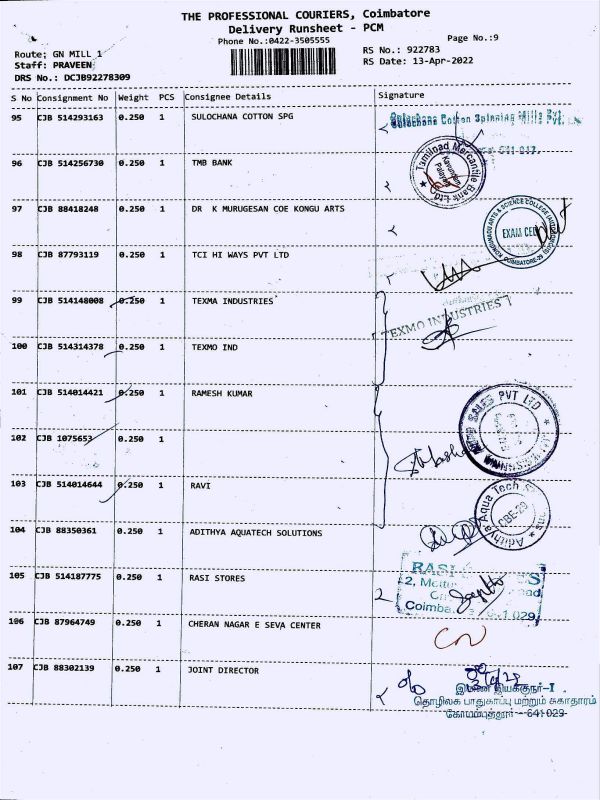 THE PROFESSIONAL COURIERS, Coimbatore
Delivery Runsheet - PCM
Phone No.:0422-3505555
Page No.:9
Route: GN MILL 1
Staff: PRAVEEN
DRS No.: DCJB92278309
RS No.: 922783
RS Date: 13-Apr-2022
S No Consignment No Weight PCS Consignee Details Signature
95 CJB 514293163 0.250 1 SULOCHANA COTTON SPG
Sulochana Cotton Spinning Mills Pvt. Ltd.
96 CJB 514256730 0.250 1 TMB BANK
Tamilnad Mercantile Bank Ltd.
97 CJB 88418248 0.250 1 DR K MURUGESAN COE KONGU ARTS
KONGUNADU ARTS & SCIENCE COLLEGE
EXAM CELL
COIMBATORE-29
98 CJB 87793119 0.250 1 TCI HI WAYS PVT LTD
99 CJB 514148008 0.250 1 TEXMA INDUSTRIES
TEXMO INDUSTRIES
100 CJB 514314378 0.250 1 TEXMO IND
101 CJB 514014421 0.250 1 RAMESH KUMAR
SALES PVT LTD
102 CJB 1075653 0.250 1
103 CJB 514014644 0.250 1 RAVI
Adithya Aqua Tech
CBE-29
104 CJB 88350361 0.250 1 ADITHYA AQUATECH SOLUTIONS
105 CJB 514187775 0.250 1 RASI STORES
RASI
106 CJB 87964749 0.250 1 CHERAN NAGAR E SEVA CENTER
107 CJB 88302139 0.250 1 JOINT DIRECTOR
இணை இயக்குநர்-I
தொழிலக பாதுகாப்பு மற்றும் சுகாதாரம்
கோயம்புத்தூர் - 641029